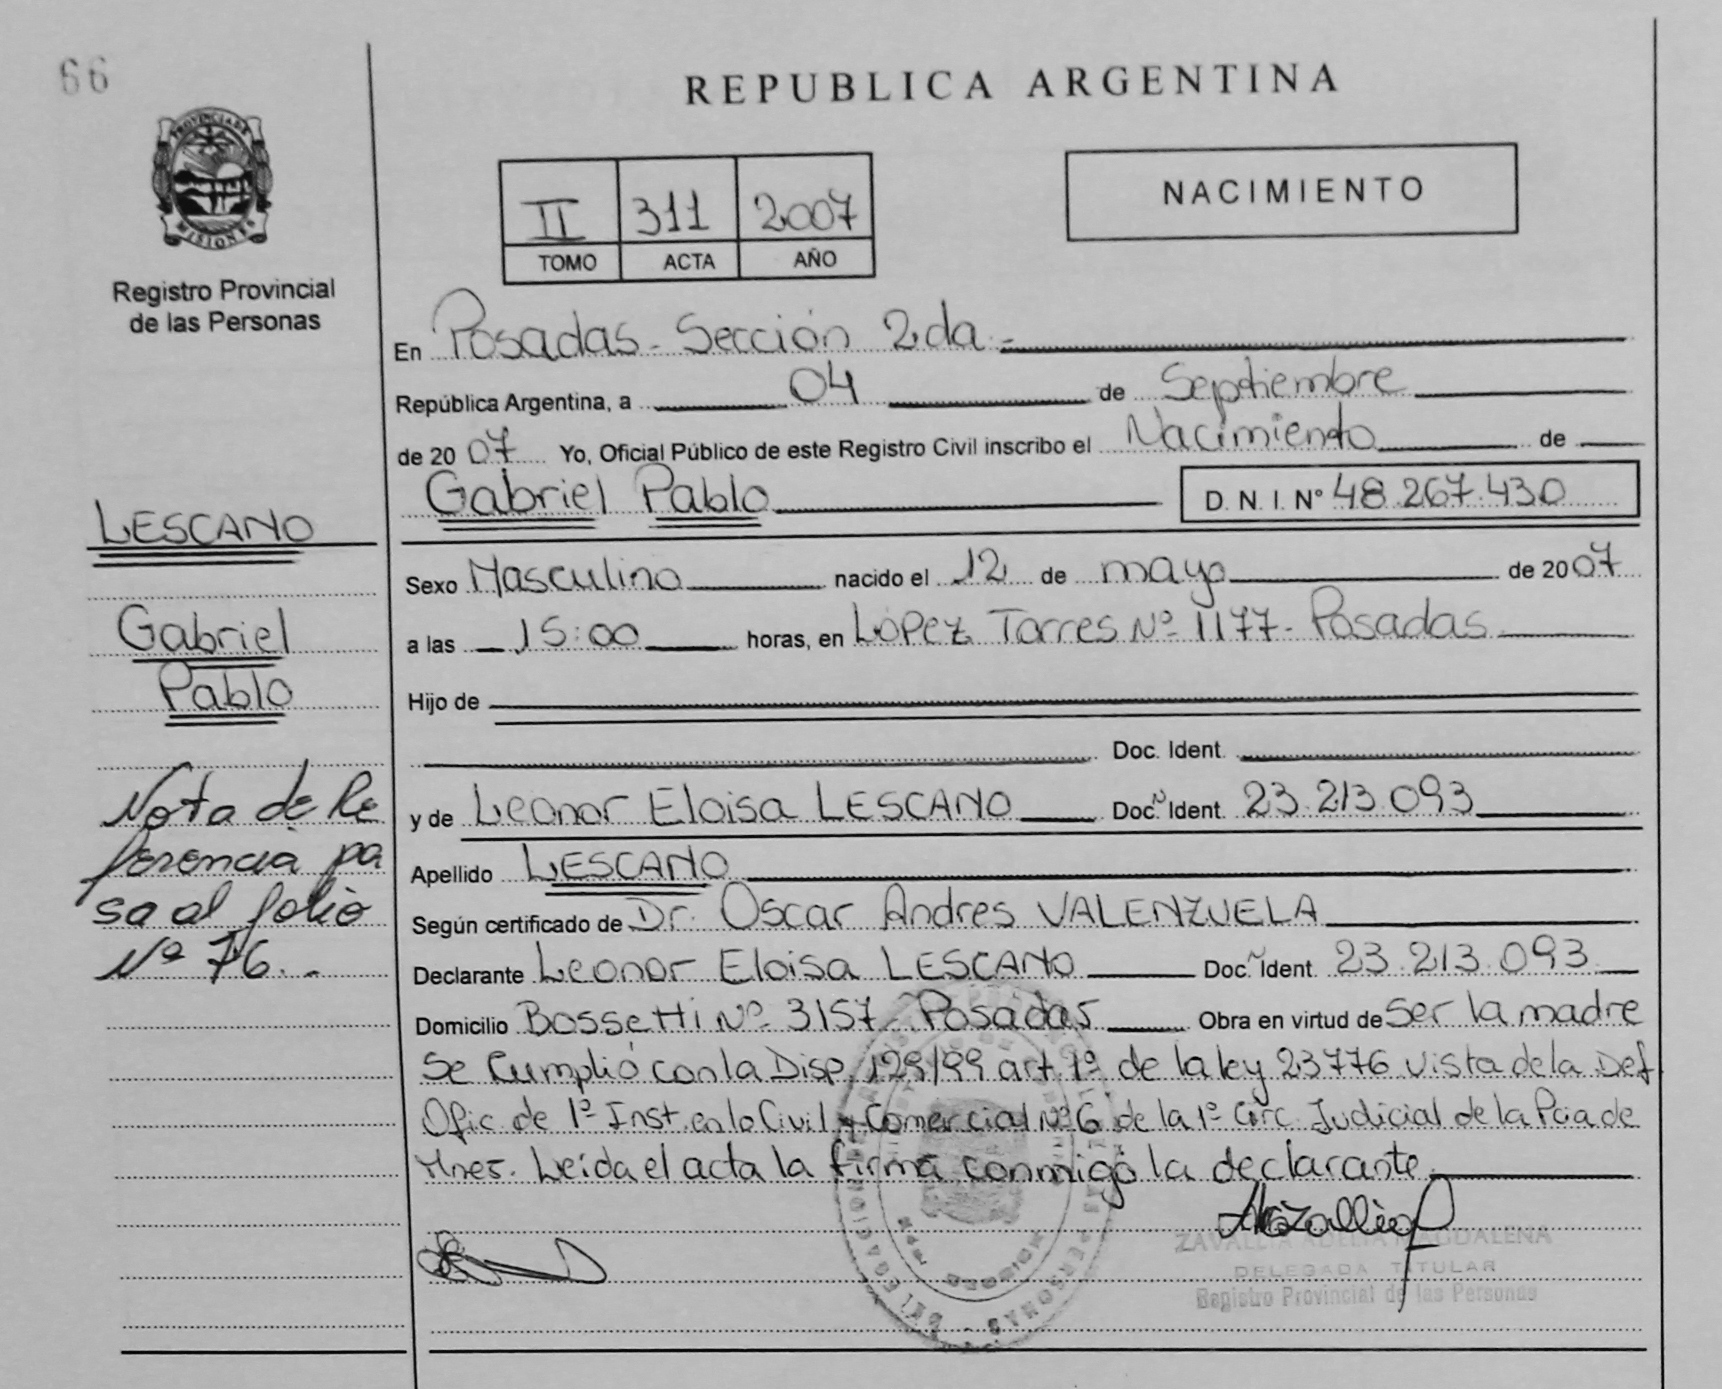 66
REPUBLICA ARGENTINA
PROVINCIA DE MISIONES
Registro Provincial
de las Personas
II 311 2007
TOMO ACTA AÑO
NACIMIENTO
En Posadas - Sección 2da.-
República Argentina, a 04 de Septiembre
de 2007 Yo, Oficial Público de este Registro Civil inscribo el Nacimiento de
Gabriel Pablo D. N. I. N° 48.267.430
Sexo Masculino nacido el 12 de mayo de 2007
a las 15:00 horas, en López Torres Nº 1177- Posadas
Hijo de
Doc. Ident.
y de Leonor Eloisa LESCANO Doc. Ident. 23.213.093
Apellido LESCANO
Según certificado de Dr. Oscar Andres VALENZUELA
Declarante Leonor Eloisa LESCANO Doc. Ident. 23.213.093
Domicilio Bossetti Nº 3157- Posadas Obra en virtud de Ser la madre
Se Cumplió con la Disp. 129/99 art 1º de la ley 23776 vista de la Def
Ofic de 1º Inst. en lo Civil y Comercial Nº 6 de la 1º Circ. Judicial de la Pcia de
Mnes. Leida el acta la firma conmigo la declarante
ZAVALLIA MAGDALENA
DELEGADA TITULAR
Registro Provincial de las Personas
LESCANO
Gabriel
Pablo
Nota de Re
ferencia pa
sa al folio
Nº 76.-